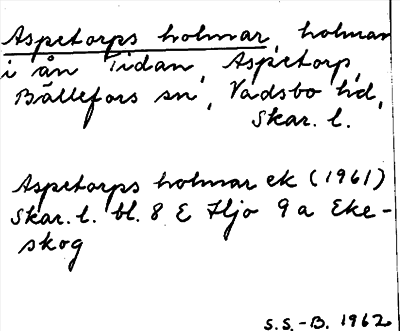 Aspetorps holmar, holmar
i ån Tidan, Aspetorp,
Bällefors sn, Vadsbo hd,
Skar. l.
Aspetorps holmar ek (1961)
Skar. l. bl. 8 E Hjo 9 a Eke-
skog
S.S.-B. 1962